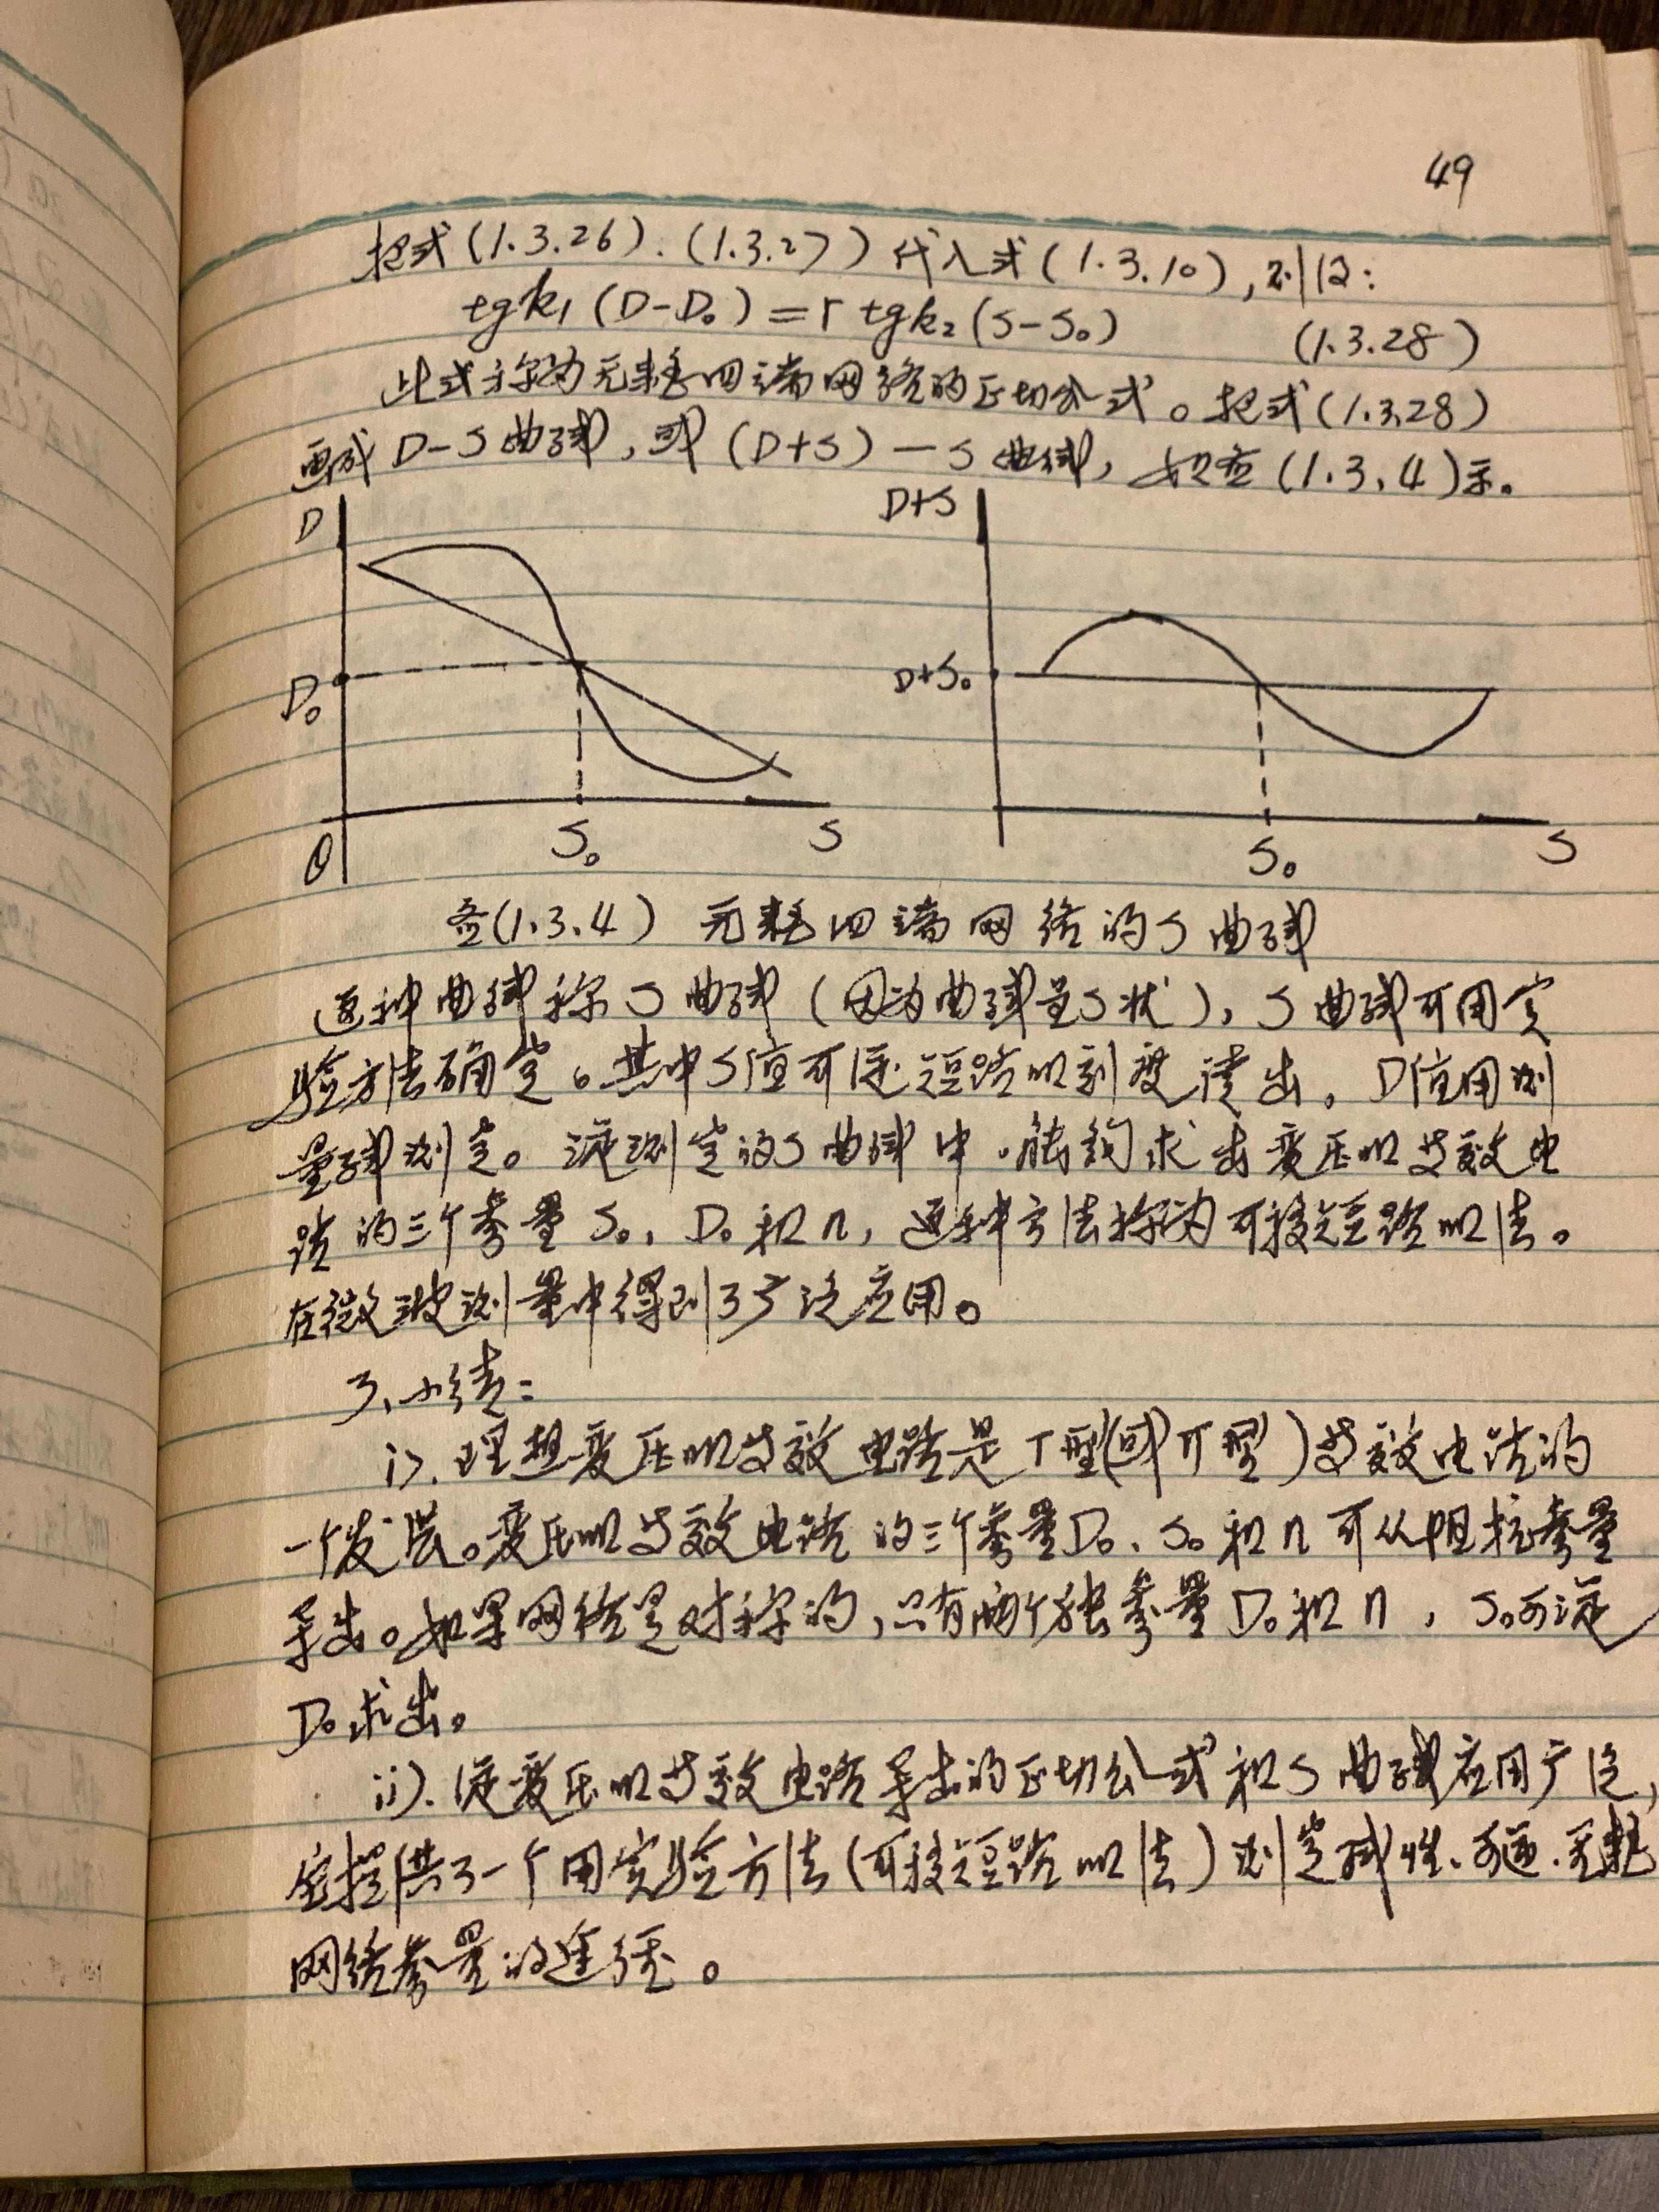 49
把式(1.3.26).(1.3.27)代入式(1.3.10),则得:
tgk₁(D-D₀)=r tgk₂(S-S₀) (1.3.28)
此式称为无耗四端网络的正切公式。把式(1.3.28)
画成D-S曲线,或(D+S)-S曲线,如图(1.3.4)示。
D D+S
D₀ D+S₀
O S₀ S S₀ S
图(1.3.4) 无耗四端网络的S曲线
这种曲线称S曲线(因为曲线呈S状),S曲线可用实
验方法确定。其中S值可从短路器刻度读出。D值用测
量线测定。从测定的S曲线中,能够求出变压器等效电
路的三个参量S₀,D₀和n,这种方法称为可移短路器法。
在微波测量中得到了广泛应用。
3、小结:
i). 理想变压器等效电路是T型(或π型)等效电路的
一个发展。变压器等效电路的三个参量D₀、S₀和n可从阻抗参量
导出。如果网络是对称的,只有两个独参量D₀和n,S₀可从
D₀求出。
ii). 从变压器等效电路导出的正切公式和S曲线应用广泛,
它提供了一个用实验方法(可移短路器法)测定线性、可逆.无耗
网络参量的途径。